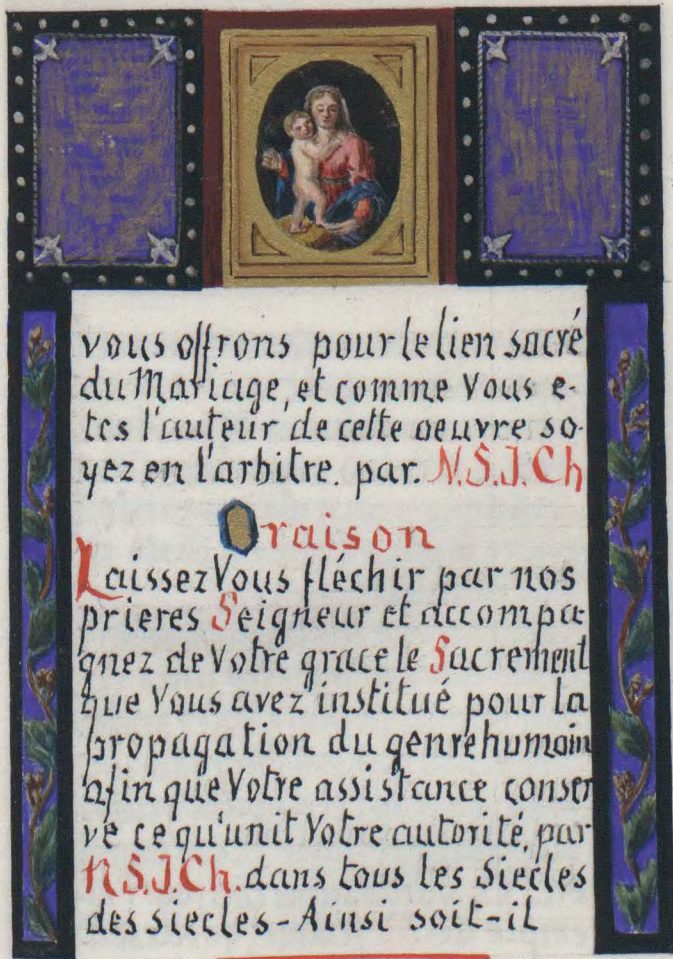 vous offrons pour le lien sacré
du Mariage, et comme Vous e-
tes l'auteur de cette oeuvre so-
yez en l'arbitre. par. N.S.J.Ch
Oraison
Laissez Vous fléchir par nos
prieres Seigneur et accompa-
gnez de Votre grace le Sacrement
que Vous avez institué pour la
propagation du genre humain
afin que Votre assistance conser
ve ce qu'unit Votre autorité, par
N.S.J.Ch. dans tous les siecles
des siecles - Ainsi soit-il